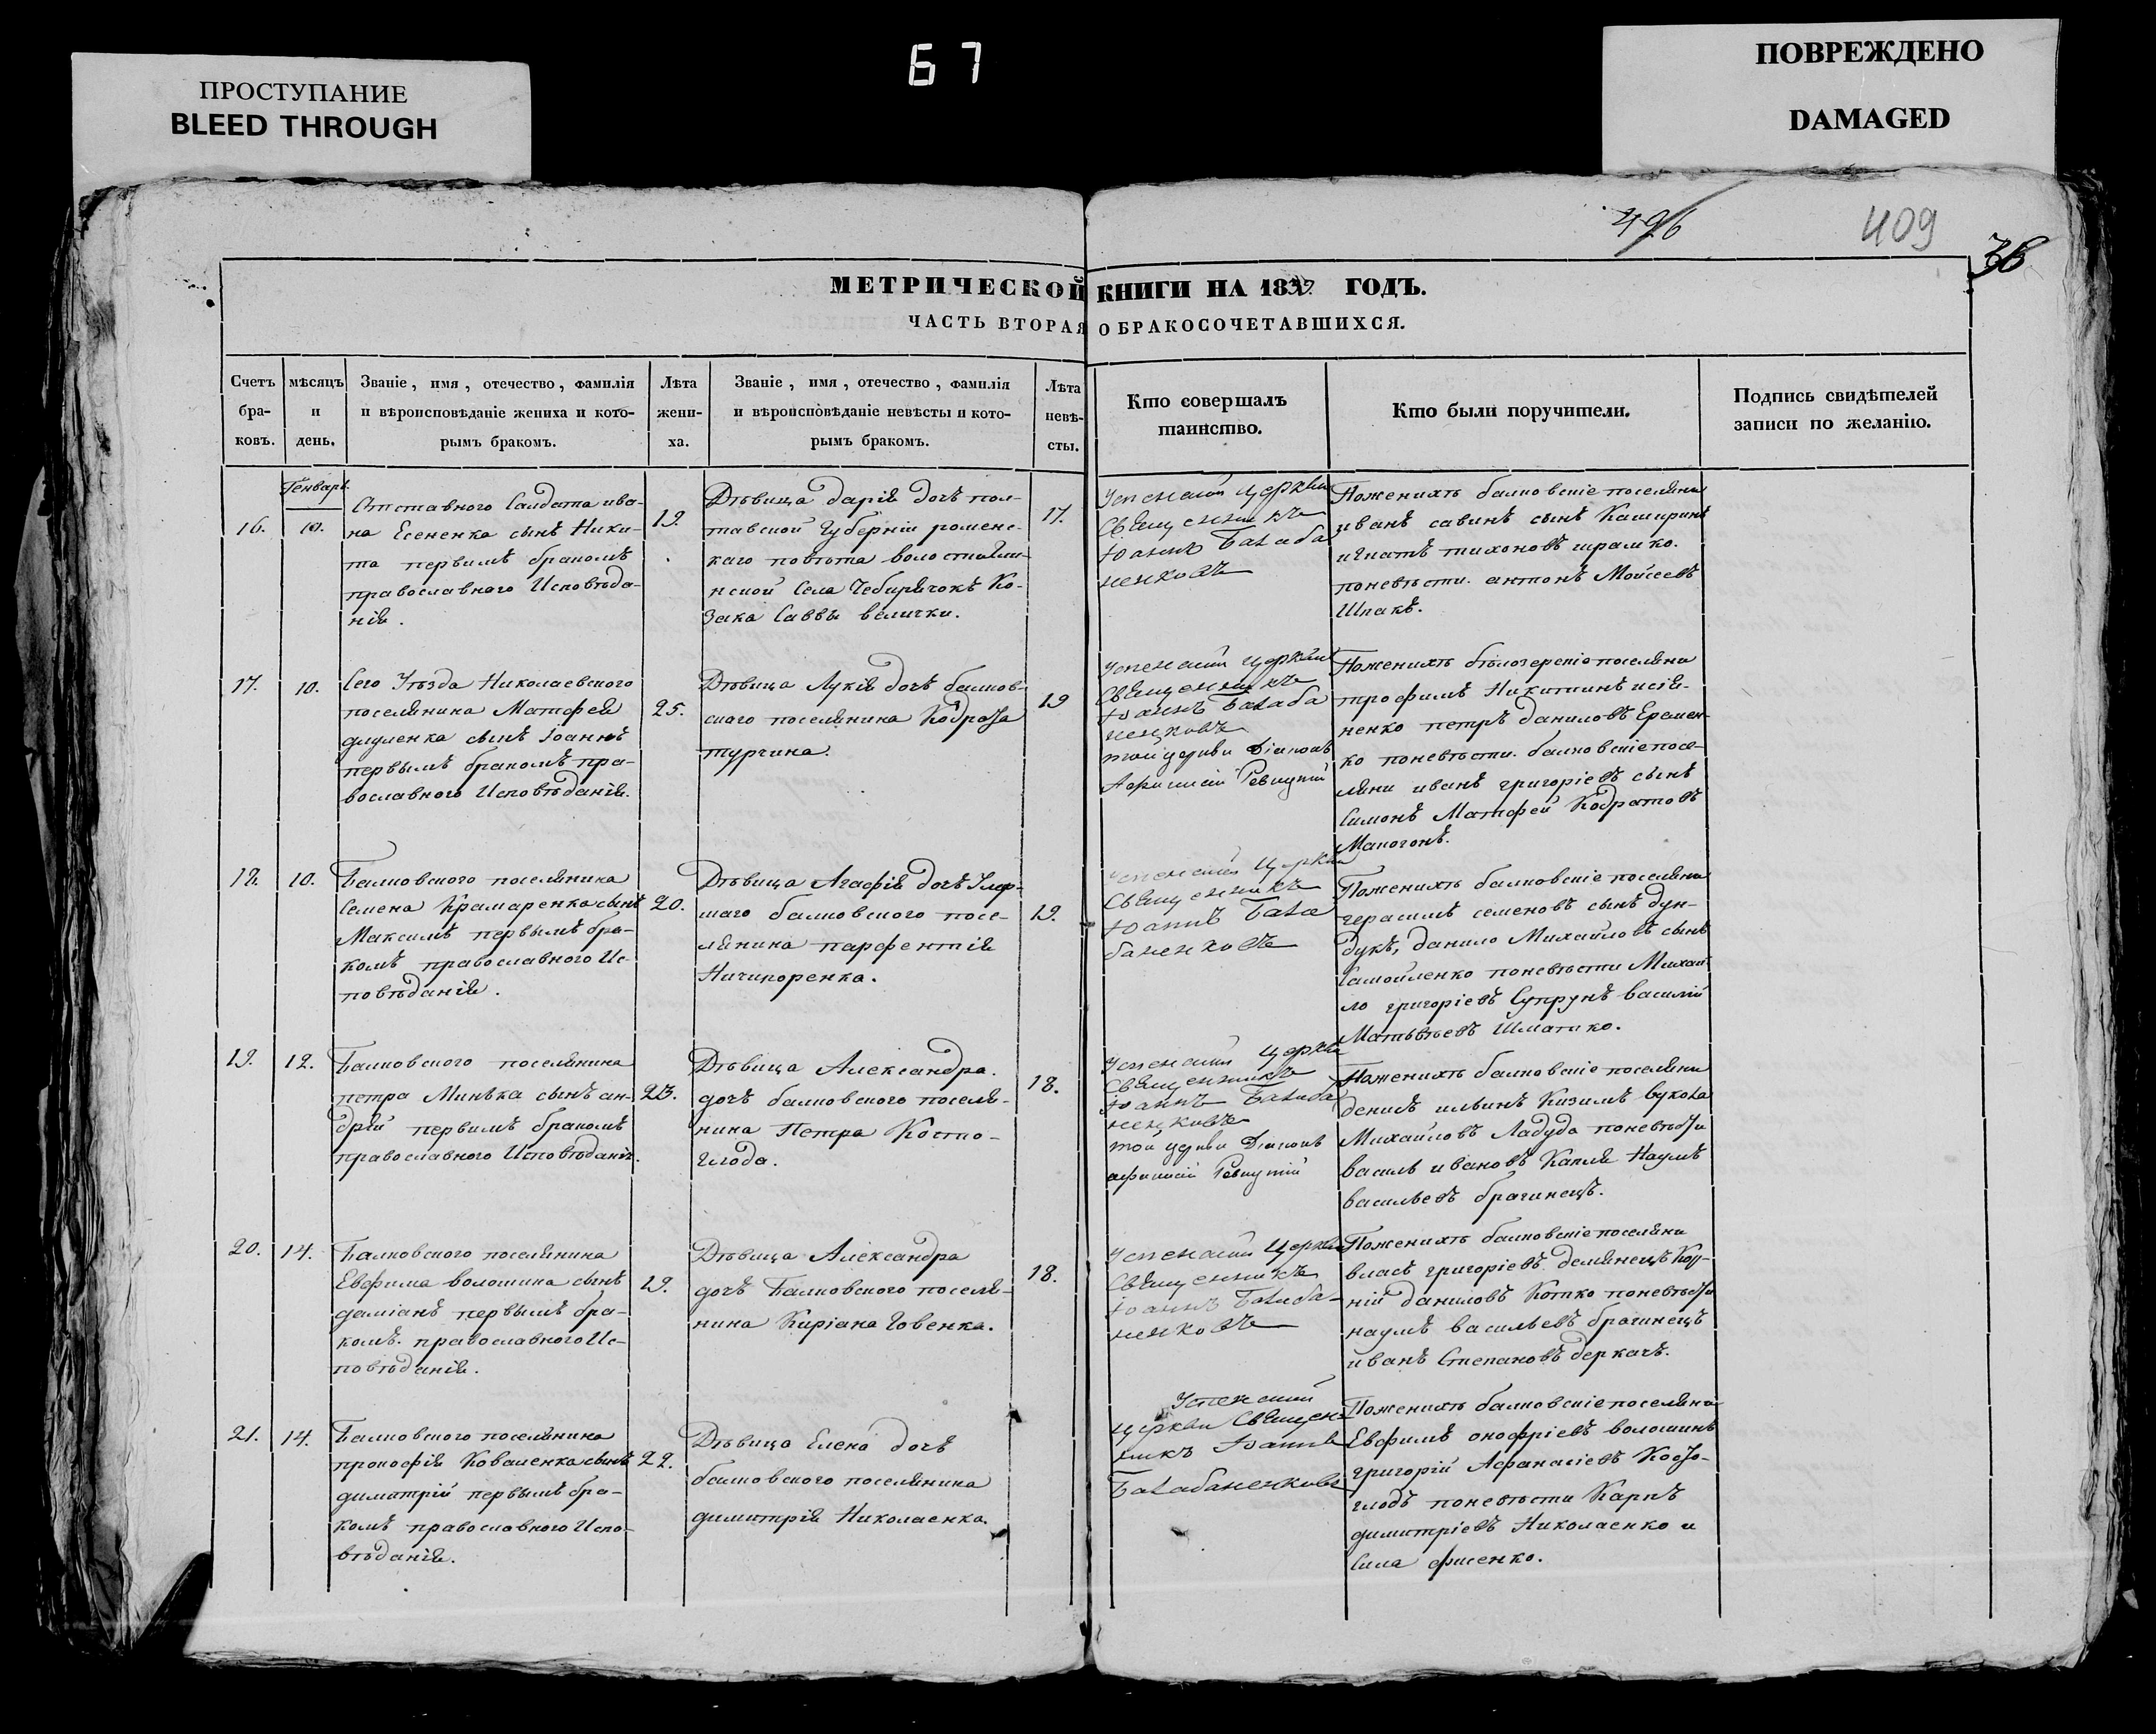 67
ПРОСТУПАНИЕ
BLEED THROUGH
ПОВРЕЖДЕНО
DAMAGED
496
409
36
МЕТРИЧЕСКОЙ КНИГИ НА 183 ГОДЪ.
ЧАСТЬ ВТОРАЯ О БРАКОСОЧЕТАВШИХСЯ.
Счетъ бра- ковъ.
мѣсяцъ и день.
Званіе, имя, отечество, фамилія и вѣроисповѣданіе жениха и кото- рымъ бракомъ.
Лѣта жени- ха.
Званіе, имя, отечество, фамилія и вѣроисповѣданіе невѣсты и кото- рымъ бракомъ.
Лѣта невѣ- сты.
Кто совершалъ таинство.
Кто были поручители.
Подпись свидѣтелей записи по желанію.
Генварь
16.
10.
Отставного Салдата ива-
на Есененка сынъ Ники-
та первымъ бракомъ
православнаго Исповѣда-
нія.
19.
Дѣвица дарія дочъ пол-
тавской Губерніи роменс-
каго повѣта волости
нской Села Чебирячокъ Ко-
зака Саввы велички.
17.
Успенской Церкви
Священникъ
Іоаннъ Балаба
ненковъ
Поженихѣ балковскіе поселяни
иванъ савинъ сынъ Каширинъ
игнатъ тихоновъ шрамко.
поневѣсти. антонъ Моисеевъ
Шпакъ.
17.
10.
Сего Уѣзда Николаевского
поселянина Матфея
сынъ Іоаннъ
первымъ бракомъ пра-
вославного Исповѣданія.
25.
Дѣвица Лукія дочъ балков-
ского поселянина Кодрата
турчина
19
Успенской Церкви
Священникъ
Іоаннъ Балаба
ненковъ
той церкви Діаконъ
Ревуцкій
Поженихѣ бѣлозерскіе поселяни
трофимъ Никитинъ
ненко петръ даниловъ Еремен-
ко поневѣсти. балковскіе посе-
ляни иванъ григоріевъ сынъ
Симонъ Матфей Кодратовъ
Макогонъ.
18.
10.
Балковского поселянина
Семена Крамаренка сынъ
Максимъ первымъ бра-
комъ православного Ис-
повѣданія.
20.
Дѣвица Агафія дочъ Умер-
шаго балковского посе-
лянина парфентія
Ничипоренка.
19.
Успенской Церкви
Священникъ
Іоаннъ Бала
баненковъ
Поженихѣ балковскіе поселяни
герасимъ семеновъ сынъ дун-
дукъ, данило Михайловъ сынъ
Самойленко поневѣсти Михай-
ло григоріевъ Супрунъ василій
Матвѣевъ Шматко.
19.
12.
Балковского поселянина
петра Минька сынъ ан-
дрій первымъ бракомъ
православного Исповѣданія.
23.
Дѣвица Александра.
дочъ балковского поселя-
нина Петра Косто-
глода.
18.
Успенской Церкви
Священникъ
Іоаннъ Балаба
ненковъ
той церкви Діаконъ
Ревуцкій
Поженихѣ балковскіе поселяни
денисъ ильинъ Кизимъ
Михайловъ Ладуда поневѣсти
василь ивановъ Капля Наумъ
васильевъ брагинецъ.
20.
14.
Балковского поселянина
Евфима волошина сынъ
даміанъ первымъ бра-
комъ. православного Ис-
повѣданія.
19.
Дѣвица Александра
дочъ Балковского поселя-
нина Киріана Говенка.
18.
Успенской Церкви
Священникъ
Іоаннъ Балаба-
ненковъ
Поженихѣ балковскіе поселяни
власъ григоріевъ демянецъ Кор-
ній даниловъ Котко поневѣсти
наумъ васильевъ брагинецъ
иванъ Степановъ деркачъ.
21.
14.
Балковского поселянина
прокофія Коваленка сынъ
димитрій первымъ бра-
комъ православного Испо-
вѣданія.
22.
Дѣвица Елена дочъ
балковского поселянина
димитрія Николаенка.
Успенской
церкви Священ-
никъ Іоаннъ
Балабаненковъ
Поженихѣ балковскіе поселяни
Евфимъ онофріевъ волошинъ
григорій Афанасіевъ Косто-
глодъ поневѣсти Карпъ
димитріевъ Николаенко и
Сила фисенко.